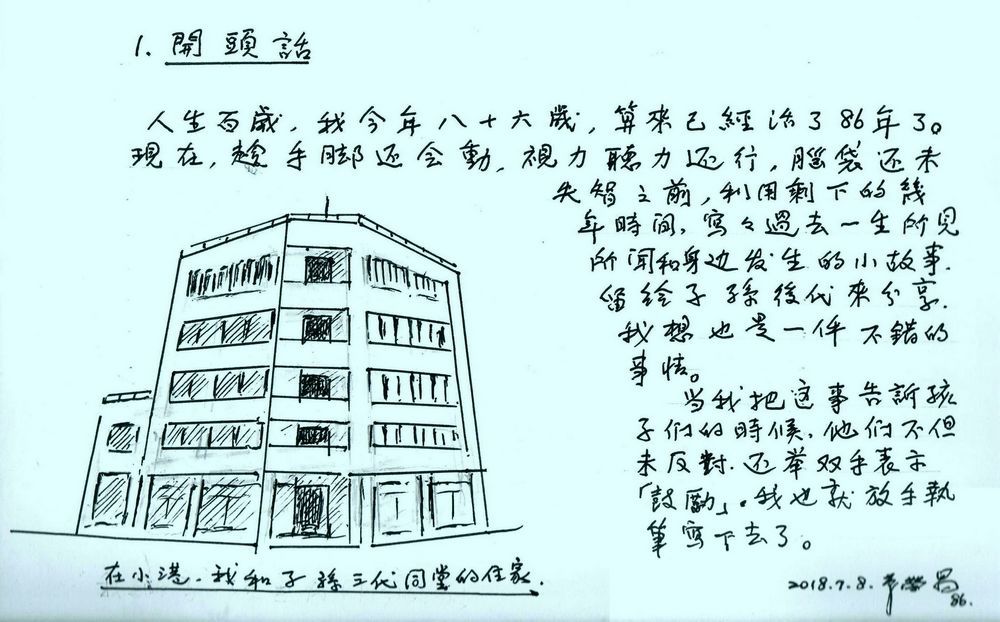 1. 開頭話
人生百歲，我今年八十六歲，算來已經活了86年了。
現在，趁手脚还会動，視力聽力还行，腦袋还未
失智之前，利用剩下的幾
年時间，寫々過去一生所見
所闻和身边发生的小故事．
留給子孫後代來分享．
我想也是一件不錯的
事情。
当我把这事告訴孩
子们的時候．他们不但
未反對．还举双手表示
「鼓勵」。我也就放手執
筆寫下去了。
在小港．我和子孫三代同堂的住家．
2018.7.8.
86.